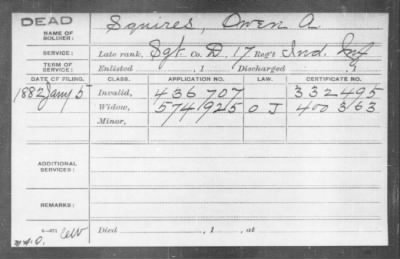 DEAD
NAME OF SOLDIER: Squires, Owen A.
SERVICE: Late rank, Sgt Co. D, 17 Reg't Ind. Inf
TERM OF SERVICE: Enlisted , 1 Discharged , 1
DATE OF FILING. CLASS. APPLICATION NO. LAW. CERTIFICATE NO.
1882 Jany 5 Invalid, 436 707 332 495
Widow, 574 925 O J 400 363
Minor,
ADDITIONAL SERVICES:
REMARKS:
Died , 1 , at